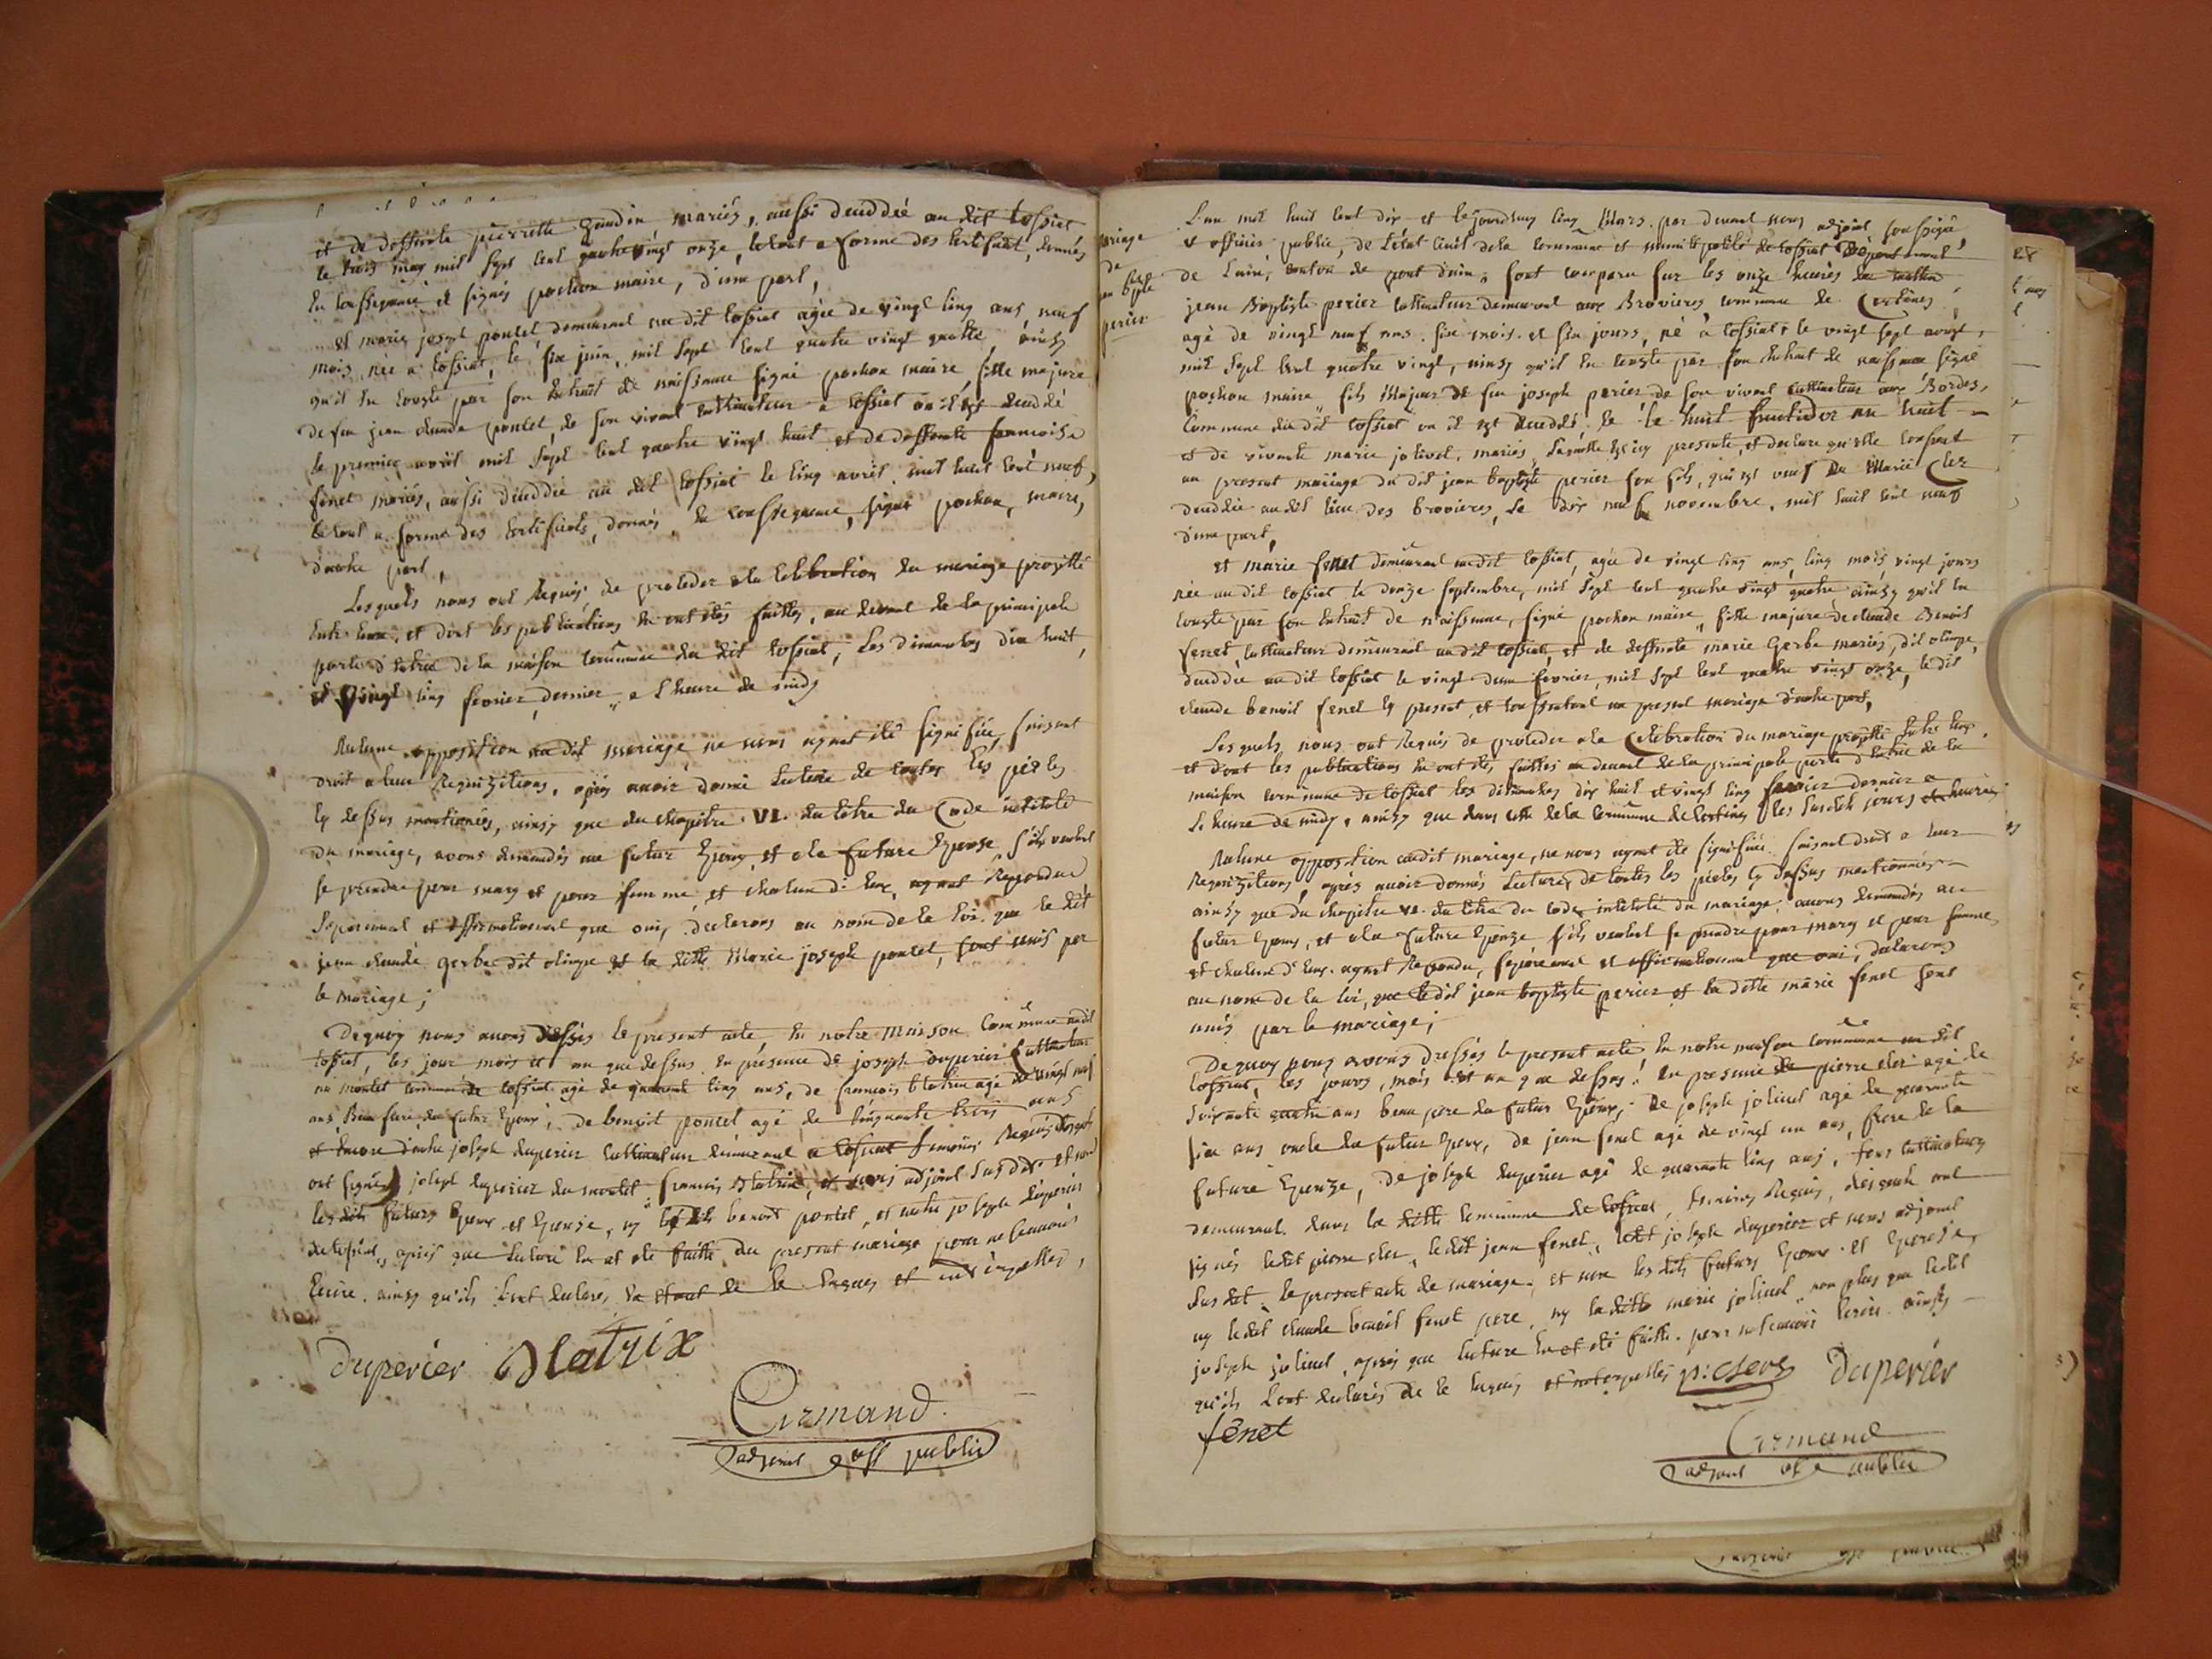 et de deffunte pierrette gaudin mariés, aussi deceddée au dit tossiat
le trois may mil sept cent quatre vingt onze, le tout a forme des certificat, donnés
en conssequance et signés pochon maire, d'une part,
et marie joseph pontet, demeurant au dit tossiat agée de vingt cinq ans, neuf
mois, née a tossiat, le six juin, mil sept cent quatre vingt quatre, ainsy
qu'il en conste par son extrait de naissance signé pochon maire, fille majure
de feu jean claude pontet, de son vivant cultivateur a tossiat ou il est deceddé
le premier avril mil sept cent quatre vingt huit et de deffunte francoise
fenet mariés, aussi deceddée au dit tossiat le cinq avril mil huit cent neuf,
le tout a forme des certificats, donnés, en conssequance, signés pochon, maire,
d'autre part,
Lesquels nous ont requis de proceder a la celebration du mariage projetté
entr'eux, et dont les publications en ont étés faittes, au devant de la principale
porte d'entrée de la maison commune du dit tossiat, les dimanches dix huit,
et vingt cinq fevrier dernier, a l'heure de midy
Aulcune opposition au dit mariage ne nous ayant été signifiée, faisant
droit a leur requisitions, après avoir donné lecture de toutes les pièces
cy dessus mentionnées, ainsy que du chapitre VI. du titre du Code intitulé
du mariage, avons demandés au futur epoux et a la future epouse s'ils veulent
se prendre pour mary et pour femme, et chacun d'eux ayant repondu
séparement et affirmativement que oui, declarons au nom de la loi que le dit
jean claude gerbe dit olimpe et la ditte Marie joseph pontet, sont unis par
le mariage;
De quoy nous avons dressés le present acte, en notre maison Commune audit
tossiat, les jour mois et an que dessus, en présence de joseph duperier Cultivateur
au montet commune de tossiat agé de quarante cinq ans, de françois blatrix agé de vingt neuf
ans Beau frere du futur epoux, de benoit pontet agé de cinquante trois ans
et encore d'autre joseph duperier cultivateur demeurant a tossiat temoins requis
ont signés joseph duperier du montet françois blatrix, et nous adjoint susdit et non
les dits futurs epoux et epouse, ny le dit benoit pontet, et autre joseph duperier
de tossiat, après que lecture en at été faitte du present mariage pour ne scavoir
ecrire ainsy qu'ils l'ont declarés de ce enquis et interpellés,
duperier Blatrix
Armand
adjoint off public
mariage
de
jn Bpte
perier
L'an mil huit cent dix et le jourd'huy cinq Mars par devant nous adjoint soussigné,
officier public, de l'état civil de la commune et municipalité de tossiat departement
de l'ain, canton de pont d'ain, sont comparu sur les onze heures du matin
jean Baptiste perier cultivateur demeurant aux Brovieres commune de Certines
agé de vingt neuf ans six mois et six jours, né à tossiat le vingt sept aoust,
mil sept cent quatre vingt, ainsy qu'il en conste par son extrait de naissance signé
pochon maire, fils Majeur de feu joseph perier de son vivant cultivateur aux Bordes,
Commune du dit tossiat ou il est deceddé le le huit fructidor an huit
et de vivante marie jolivet, mariés, laquelle est icy presente, et declare qu'elle consent
au present mariage du dit jean baptiste perier son fils, qui est veuf de Marie Cler
deceddée audit lieu des brovieres, le dix neuf novembre, mil huit cent neuf
d'une part,
et marie fenet demeurant au dit tossiat, agée de vingt cinq ans, cinq mois vingt jours
née au dit tossiat le douze septembre, mil sept cent quatre vingt quatre ainsy qu'il en
conste par son extrait de naissance, signé pochon maire, fille majure de claude Benoit
fenet, cultivateur demeurant au dit tossiat, et de deffunte marie Gerbe mariés, dit olimpe,
deceddée au dit tossiat le vingt d'eux fevrier, mil sept cent quatre vingt onze, le dit
claude benoit fenet cy present, et conssentant au present mariage d'autre part,
Lesquels nous ont requis de proceder a la Celebration du mariage projetté entr'eux,
et dont les publications en ont étés, faittes au devant de la principale porte d'entrée de la
maison commune de tossiat les dimanches dix huit et vingt cinq fevrier dernier a
l'heure de midy, ainsy que dans celle de la commune de certines les susdits jours et heures
Aulcune opposition audit mariage, ne nous ayant été signifiée, faisant droit a leur
requisitions, après avoir donnés lectures de toutes les pièces cy dessus mentionnées
ainsy que du chapitre VI. du titre du code intitulé du mariage, avons demandés au
futur epoux, et a la future epouze s'ils veulent se prendre pour mary et pour femme
et chacun d'eux ayant repondu, séparement et affirmativement que oui, declarons
au nom de la loi, que le dit jean baptiste perier et la ditte marie fenet sont
unis par le mariage;
De quoy nous avons dressés le present acte en notre maison commune au dit
tossiat, les jours, mois et an que dessus, en presence de pierre cler agé de
soixante quatre ans beau pere du futur epoux, de joseph jolivet agé de quarante
six ans oncle du futur epoux, de jean fenet agé de vingt un ans, frere de la
future epouze, de joseph duperier agé de quarante cinq ans, tous cultivateurs
demeurant dans la ditte commune de tossiat, temoins requis, desquels ont
signés ledit pierre cler, le dit jean fenet, ledit joseph duperier et nous adjoint
susdit le present acte de mariage, et non les dits futurs epoux et epouse,
ny ledit claude benoit fenet pere, ny la ditte marie jolivet non plus que ledit
joseph jolivet, après que lecture en at été faitte, pour ne scavoir ecrire ainsy
qu'ils l'ont declarés de ce enquis et interpellés p: clerc duperier
fenet
Armand
adjoint off public